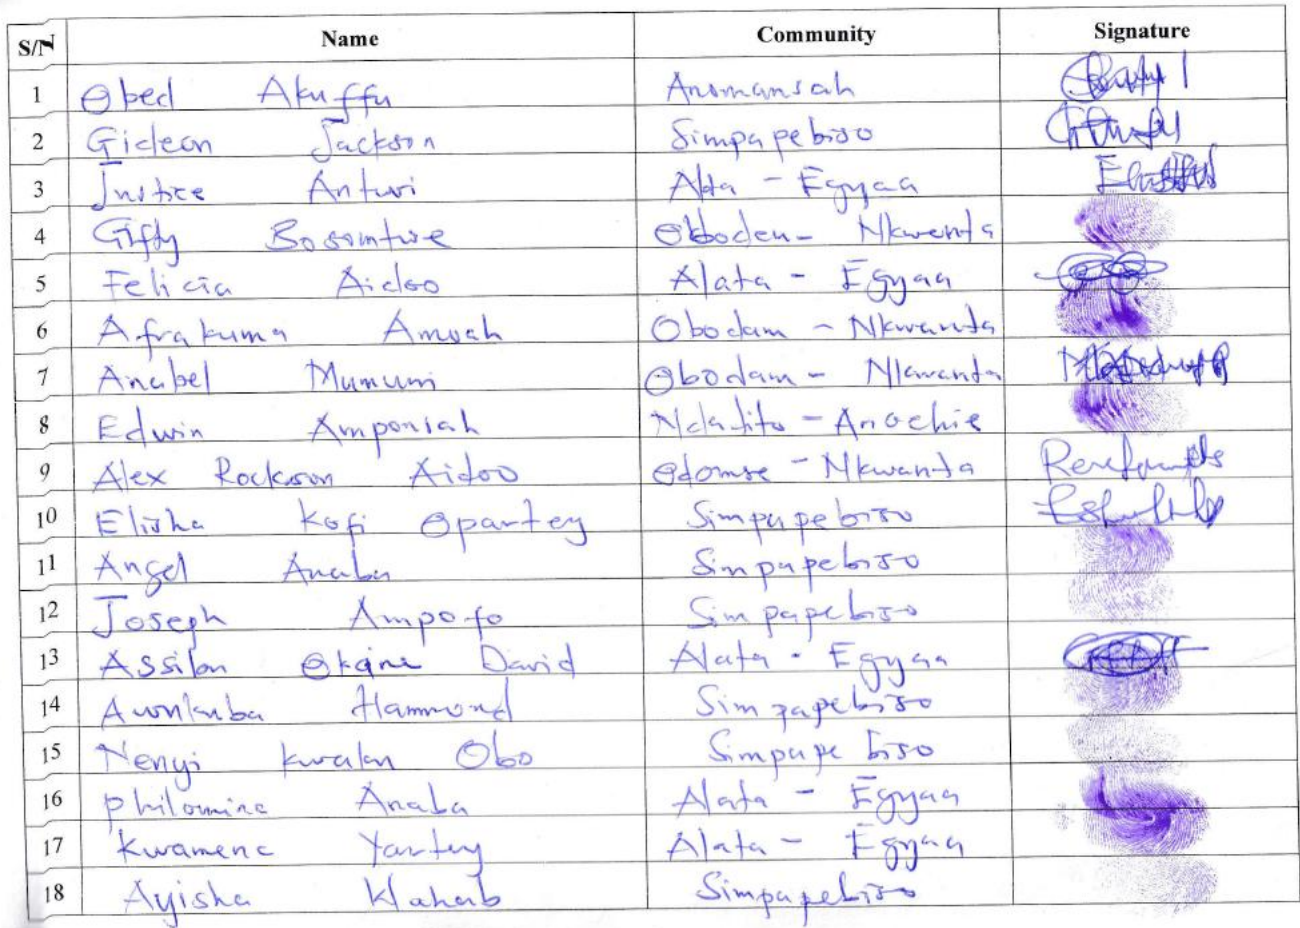 S/N Name Community Signature
1 Obed Akuffu Anomansah
2 Gideon Jackson Simpapebiso
3 Justice Antwi Alata - Egyaa
4 Gifty Bosomtwe Oboden - Nkwenta
5 Felicia Aidoo Alata - Egyaa
6 Afrakuma Amoah Obodam - Nkwanta
7 Anabel Mumuni Obodam - Nkwanta
8 Edwin Amponsah
9 Alex Rockson Aidoo Odomse - Nkwanta
10 Elisha Kofi Opartey Simpapebiso
11 Angel Anaba Simpapebiso
12 Joseph Ampofo Simpapebiso
13 Assilon Okaine David Alata - Egyaa
14 Hammond Simpapebiso
15 Nenyi Kwalan Obo Simpape biso
16 Philomina Anaba Alata - Egyaa
17 Kwamena Yartey Alata - Egyaa
18 Ayisha Wahab Simpapebiso